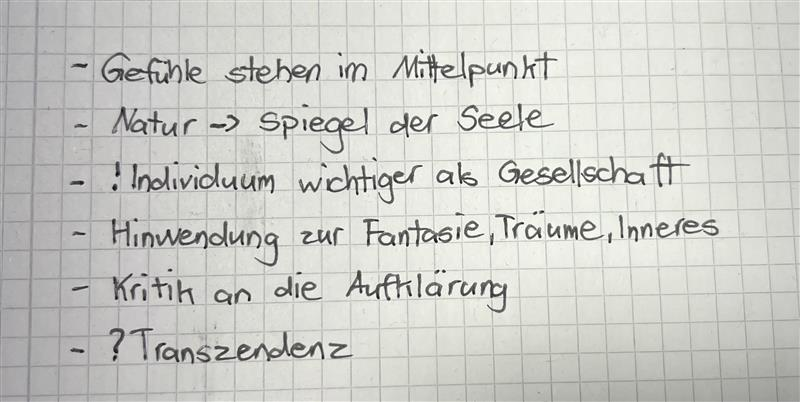 - Gefühle stehen im Mittelpunkt
- Natur -> Spiegel der Seele
- !Individuum wichtiger als Gesellschaft
- Hinwendung zur Fantasie, Träume, Inneres
- Kritik an die Aufklärung
- ?Transzendenz